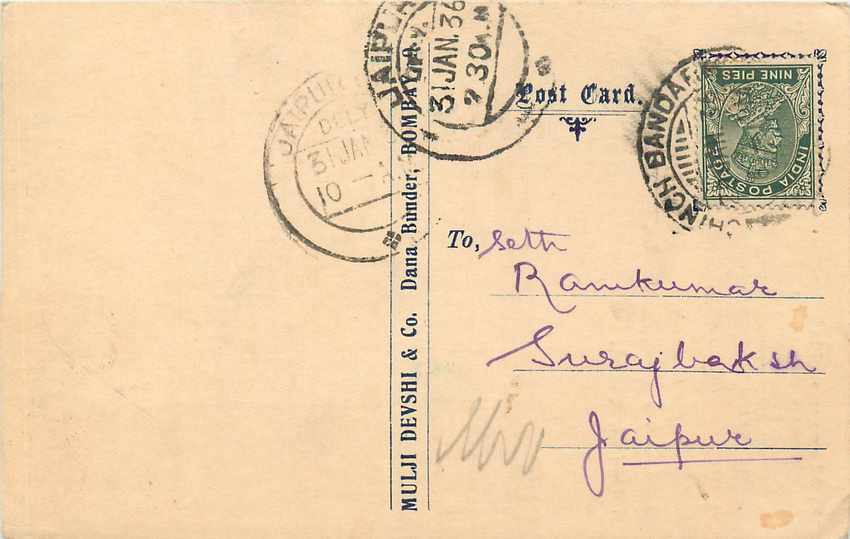 JAIPUR
31 JAN. 36
9.30 A.M
JAIPUR
DELY.
31 JAN
10
Post Card.
CHINCH BANDAR
INDIA POSTAGE
NINE PIES
MULJI DEVSHI & Co. Dana Bunder, BOMBAY, 9.
To, Seth
Ramkumar
Surajbaksh
Jaipur